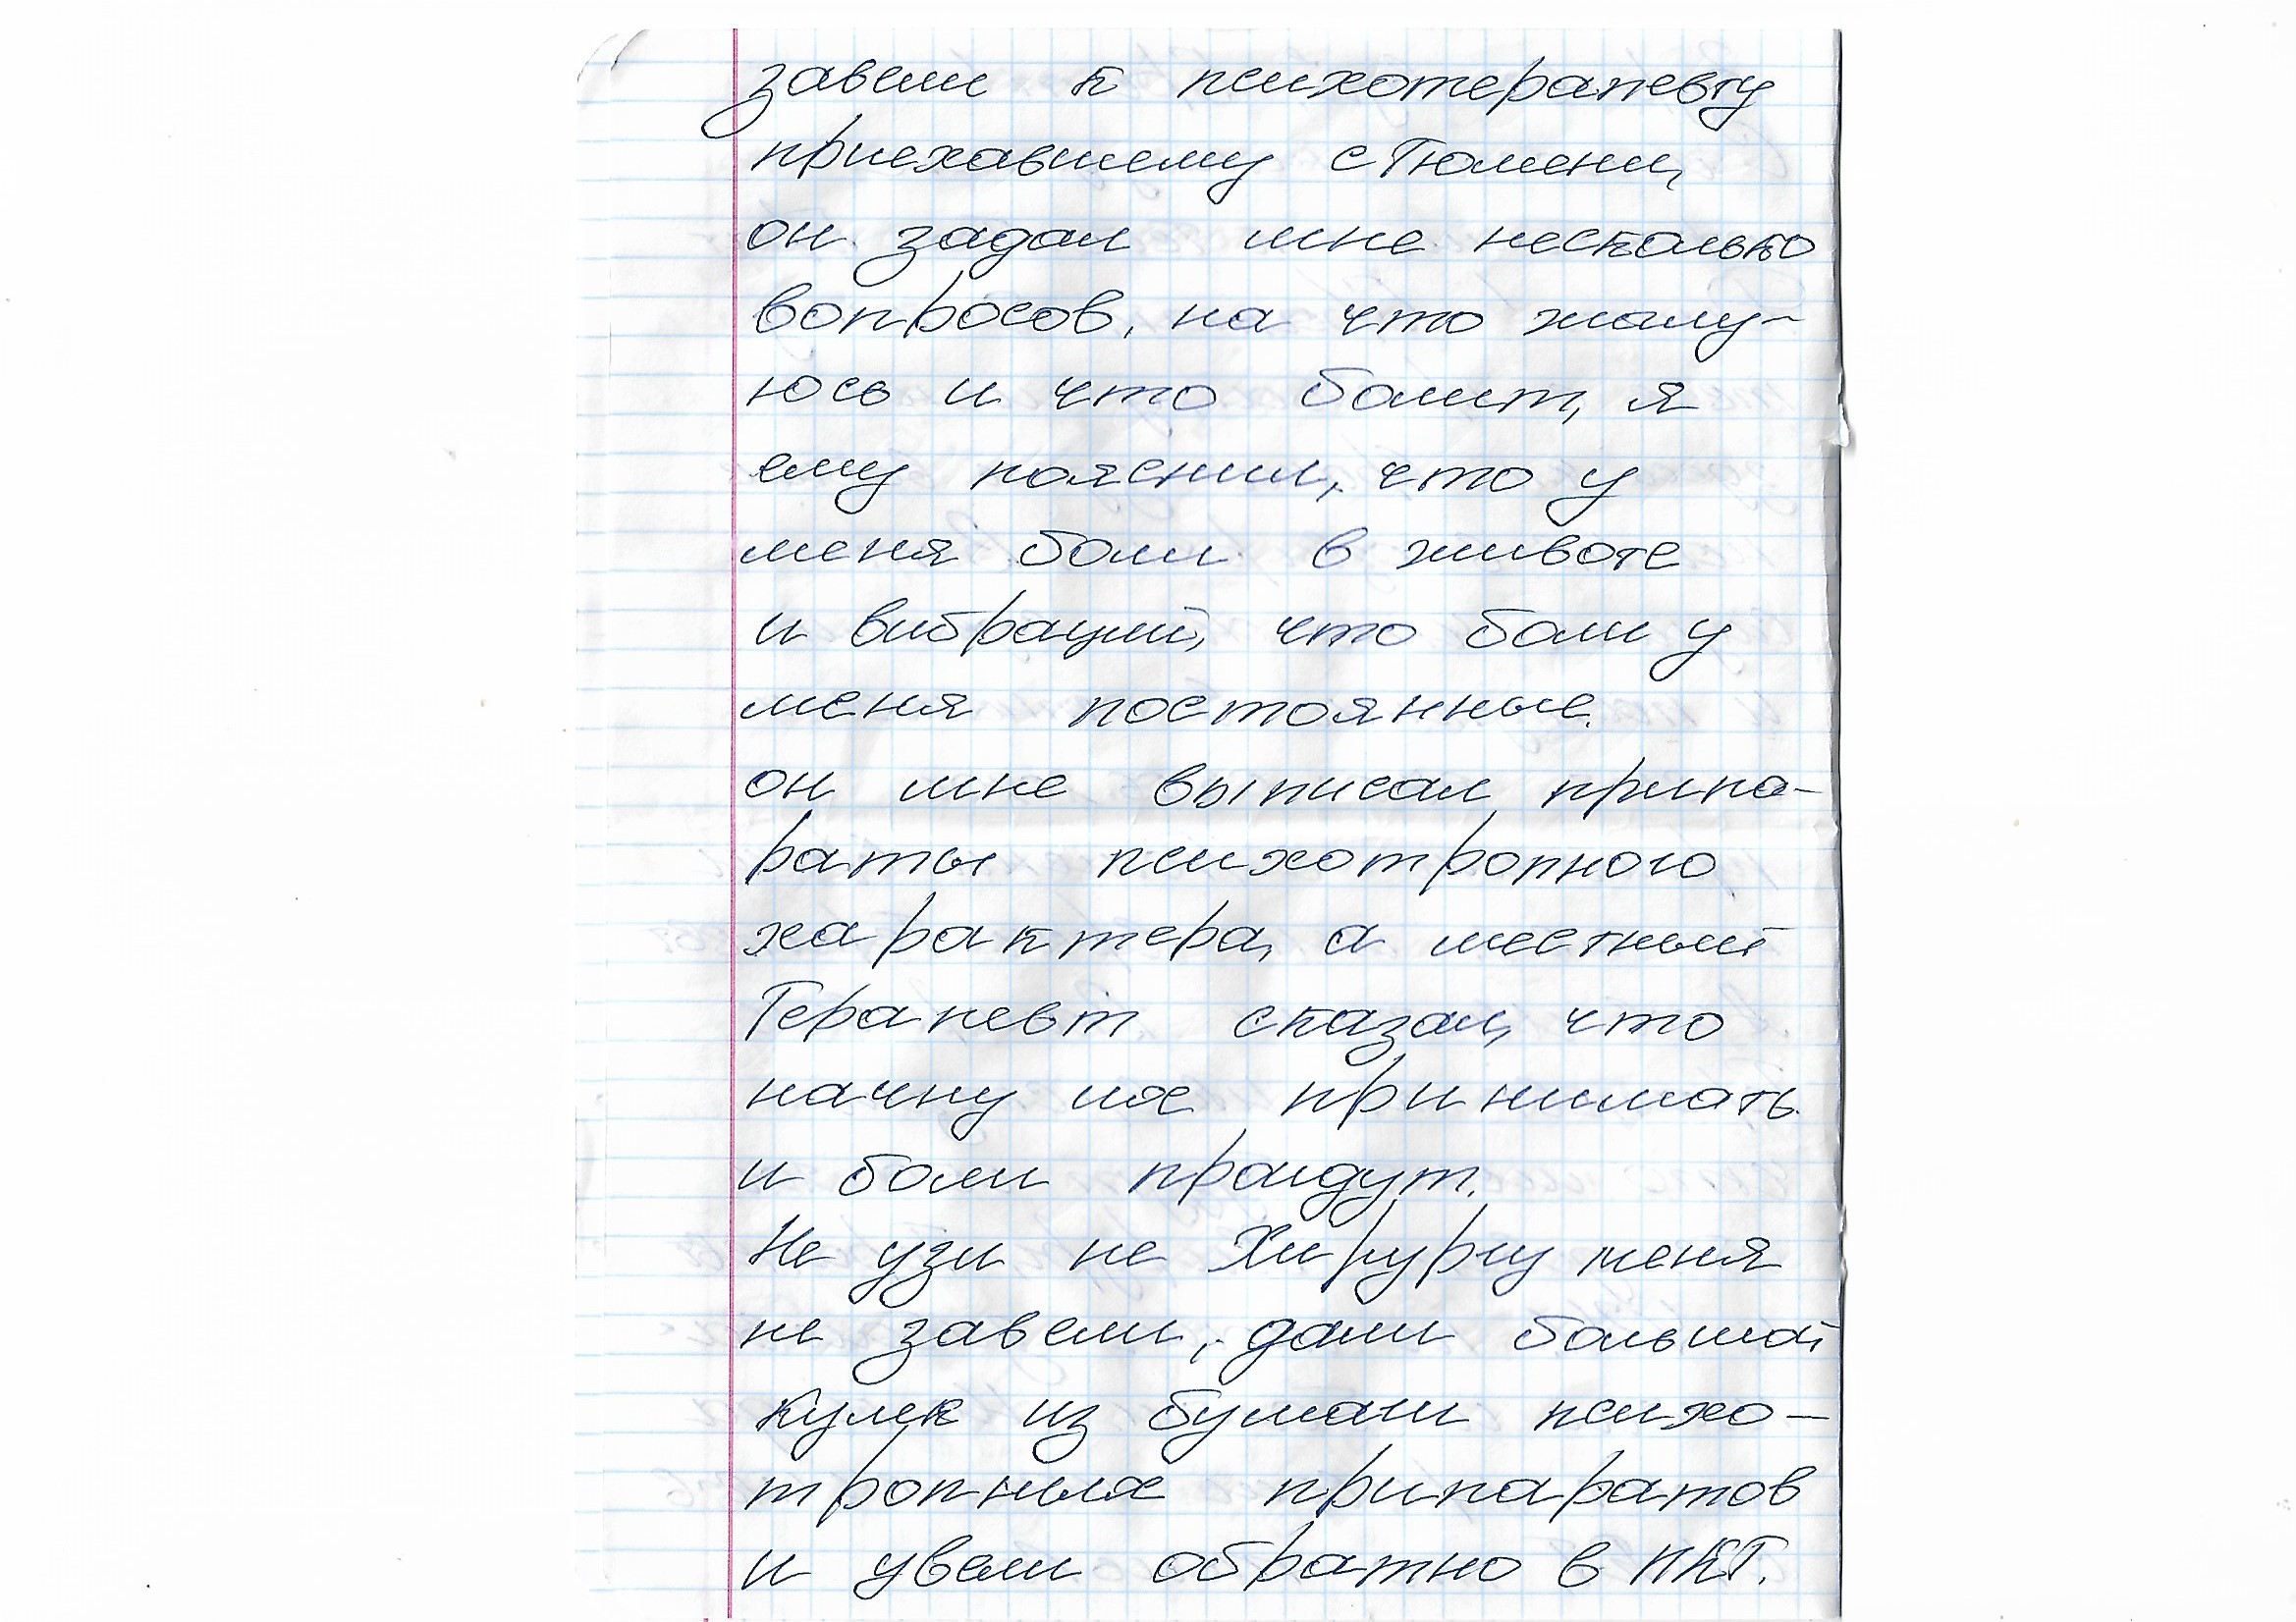 завели к психотерапевту
приехавшему с Тюмени,
он задал мне несколько
вопросов, на что жалу-
юсь и что болит, я
ему пояснил, что у
меня боли в животе
и вибраций, что боли у
меня постоянные.
он мне выписал припа-
раты психотропного
характера, а местный
Терапевт сказал, что
начну их принимать
и боли пройдут.
Не узи не Хирургу меня
не завели, дали большой
кулек из бумаги психо-
тропных припаратов
и увели обратно в ПКТ.